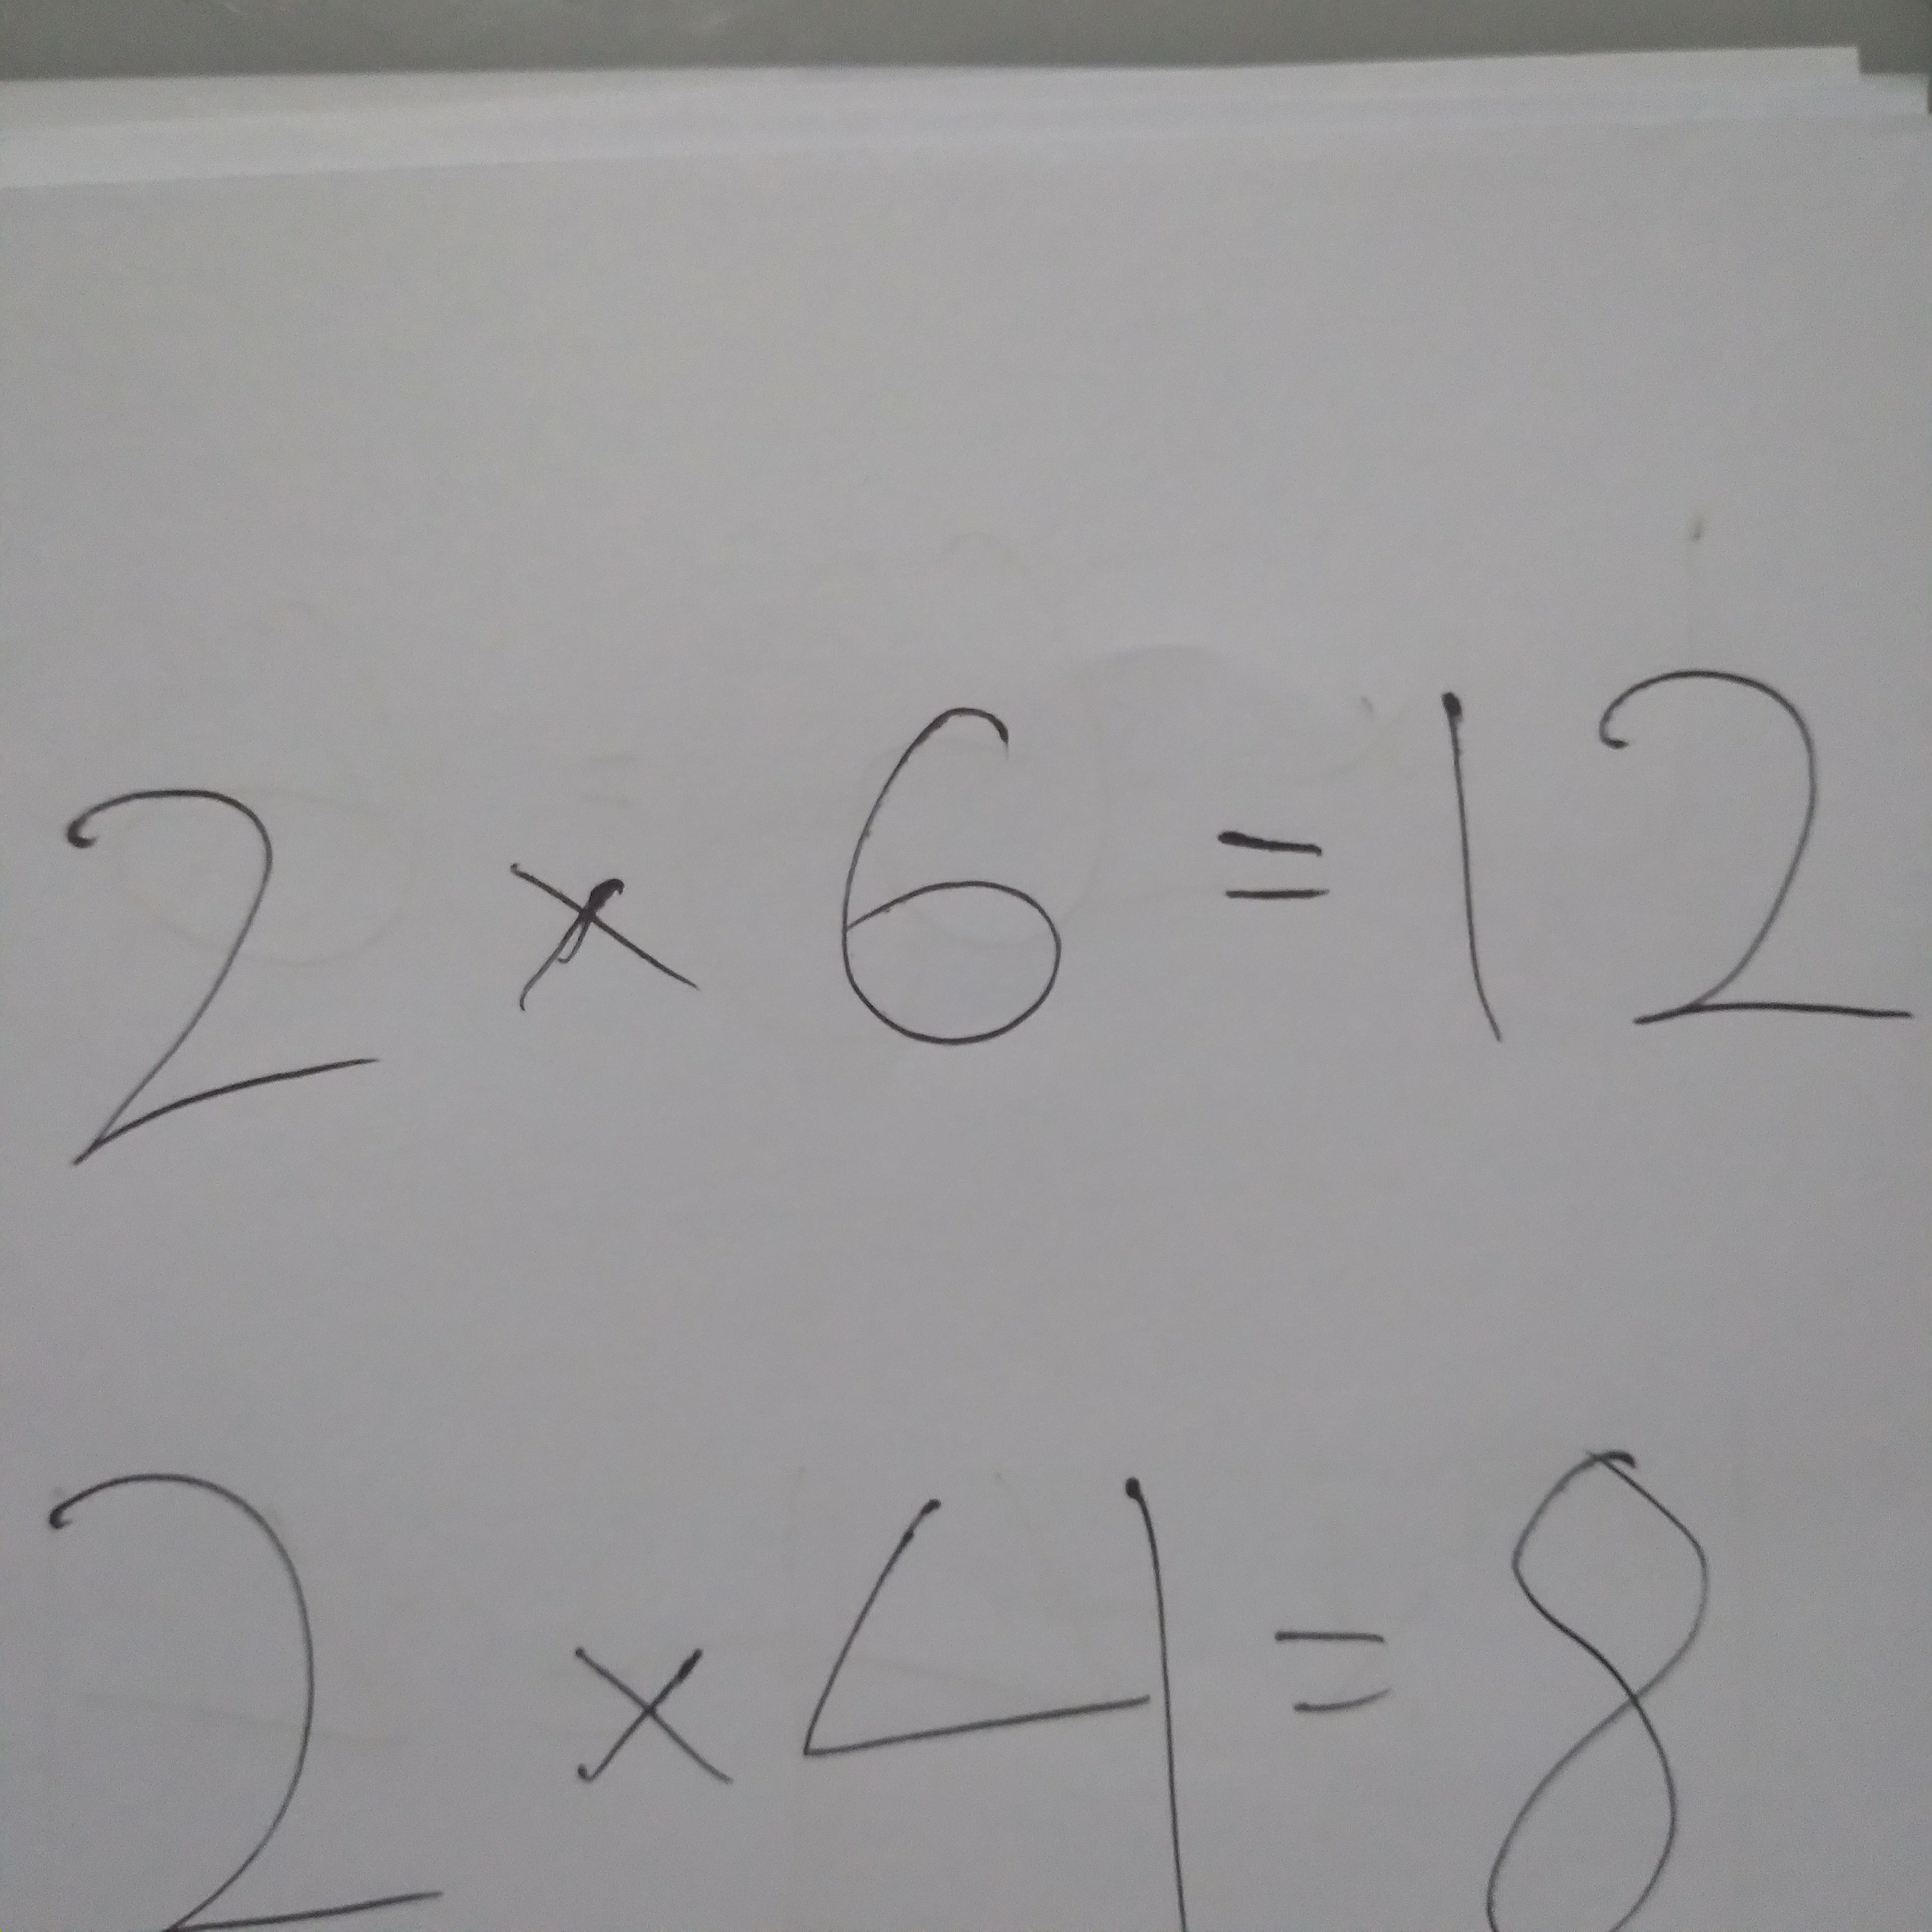 2 × 6 = 12
2 × 4 = 8